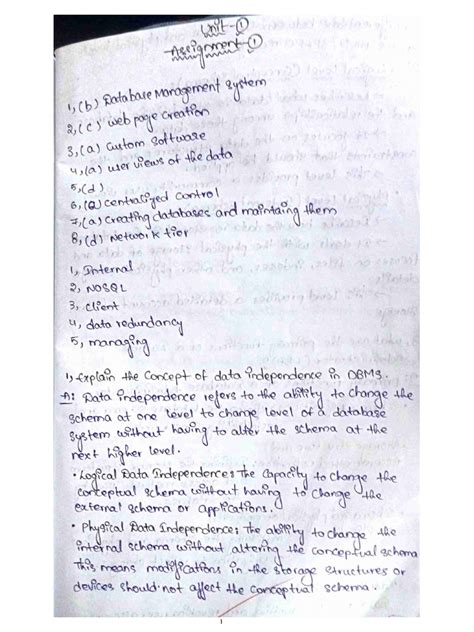 Unit-①
Assignment-①
1, (b) Database Management System
2, (c) web page creation
3, (a) custom software
4, (a) user views of the data
5, (d)
6, (a) centralized control
7, (a) creating databases and maintaing them
8, (d) Network tier
1, Internal
2, NOSQL
3, client
4, data redundancy
5, managing
1, Explain the concept of data independence in DBMS.
A: Data independence refers to the ability to change the
schema at one level to change level of a database
system without having to alter the schema at the
next higher level.
• Logical Data Independence: The capacity to change the
conceptual schema without having to change the
external schema or applications.
• Physical Data Independence: The ability to change the
internal schema without altering the conceptual schema
This means modifications in the storage structures or
devices should not affect the conceptual schema.
1